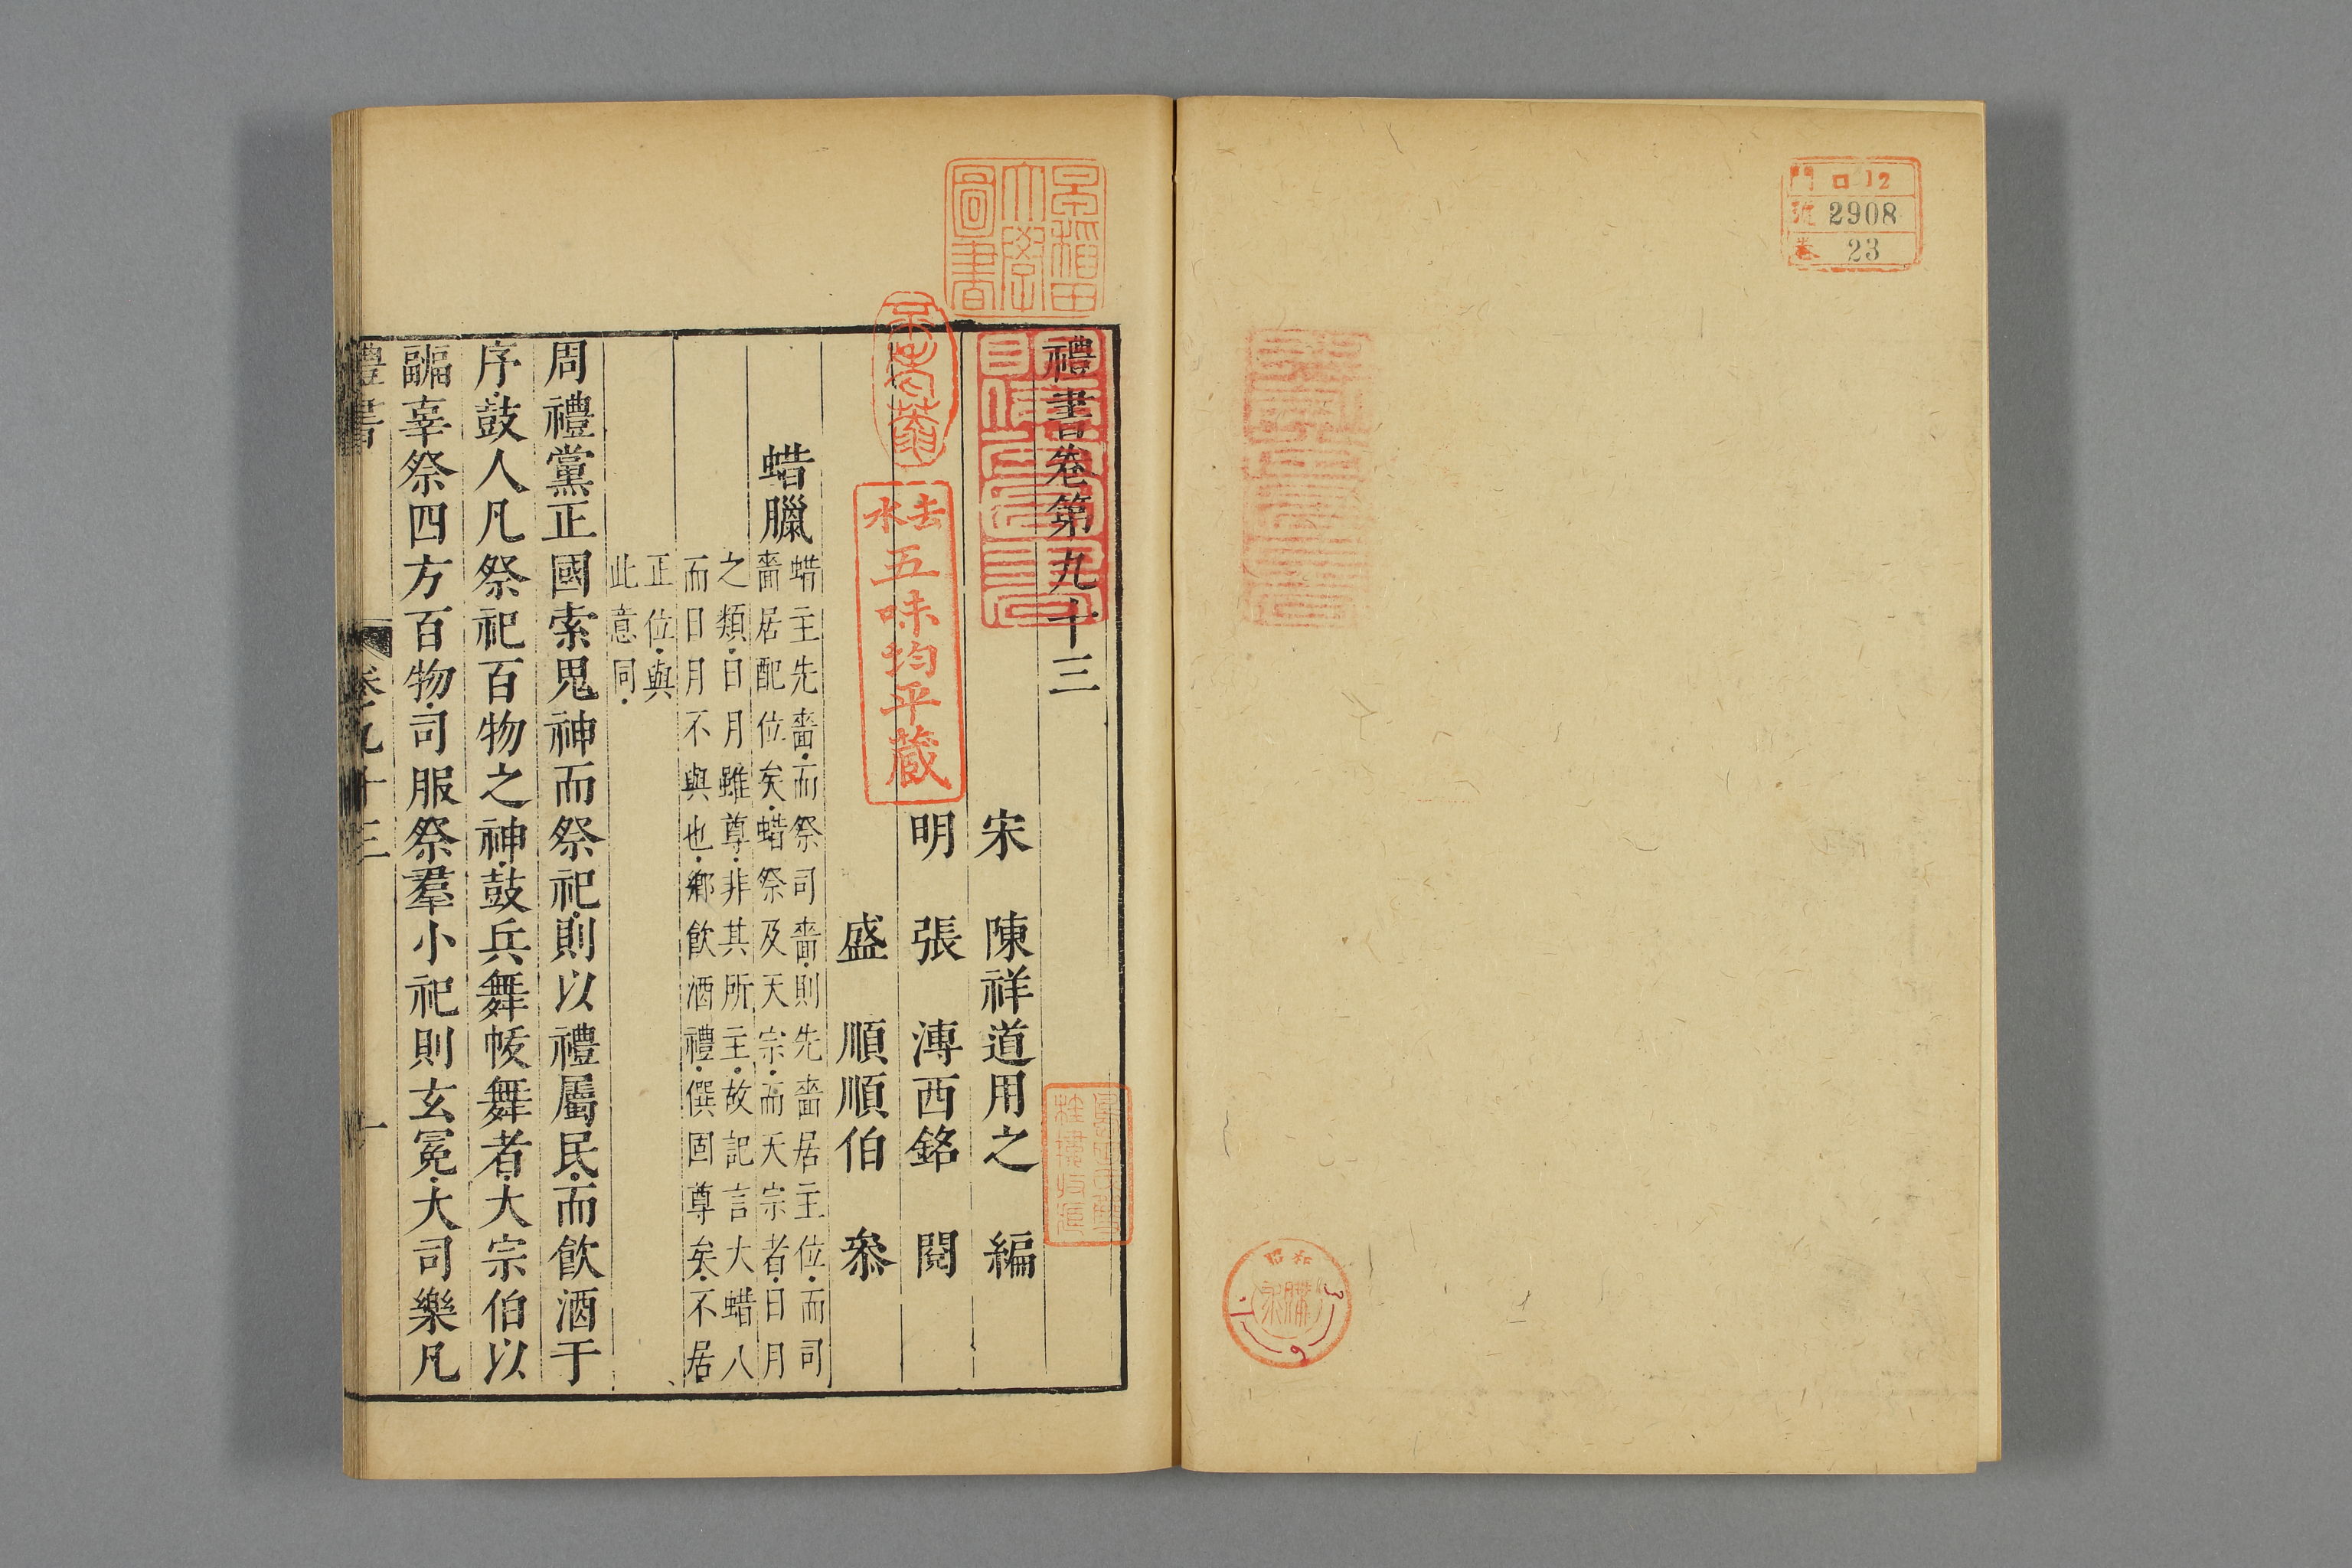 門 ロ12
號 2908
卷 23
昭和
早稲田
大學
圖書
禮書卷第九十三
宋 陳祥道用之 編
明 張 溥西銘 閱
盛 順順伯 叅
去水
五味均平藏
蜡臘
蜡主先嗇而祭司嗇則先嗇居主位而司
嗇居配位矣蜡祭及天宗而天宗者日月
之類日月雖尊非其所主故記言大蜡八
而日月不與也鄉飲酒禮僎固尊矣不居
正位與
此意同
周禮黨正國索鬼神而祭祀則以禮屬民而飲酒于
序鼓人凡祭祀百物之神鼓兵舞帗舞者大宗伯以
疈辜祭四方百物司服祭羣小祀則玄冕大司樂凡
禮書 卷九十三 一